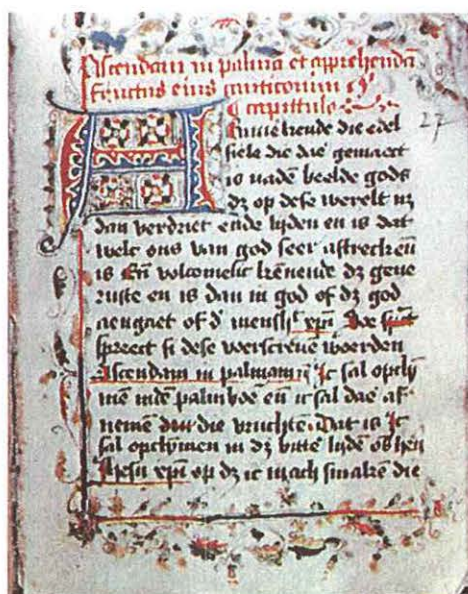 Ascendam in palma et apprehendā
fructus eius canticorum
capittulo
27
kennende die edel
siele die dae gemaect
is naden beelde gods
dz op dese werelt nz
dan verdriet ende lyden en is dat
welc ons van god seer aftreckeń
is Eń volcomelic kēnende dz gene
ruste en is dan in god of dz god
aengaet of d' mensch xpi Soe
spreect si dese voerscreue woerden
Ascendam in palmam Ic sal opcly
men indē palmboē eń ic sal dae af
nemen die vruchten Dat is Ic
sal opclymen in dz bitte lydē os hen
Jhesu xpi op dz ic mach smakē die